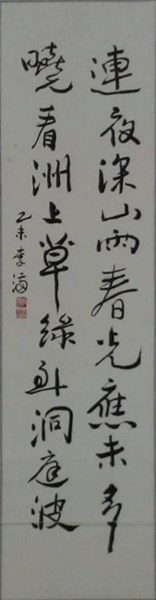 連夜深山雨春光應未多
曉看洲上草綠到洞庭波
乙未李海